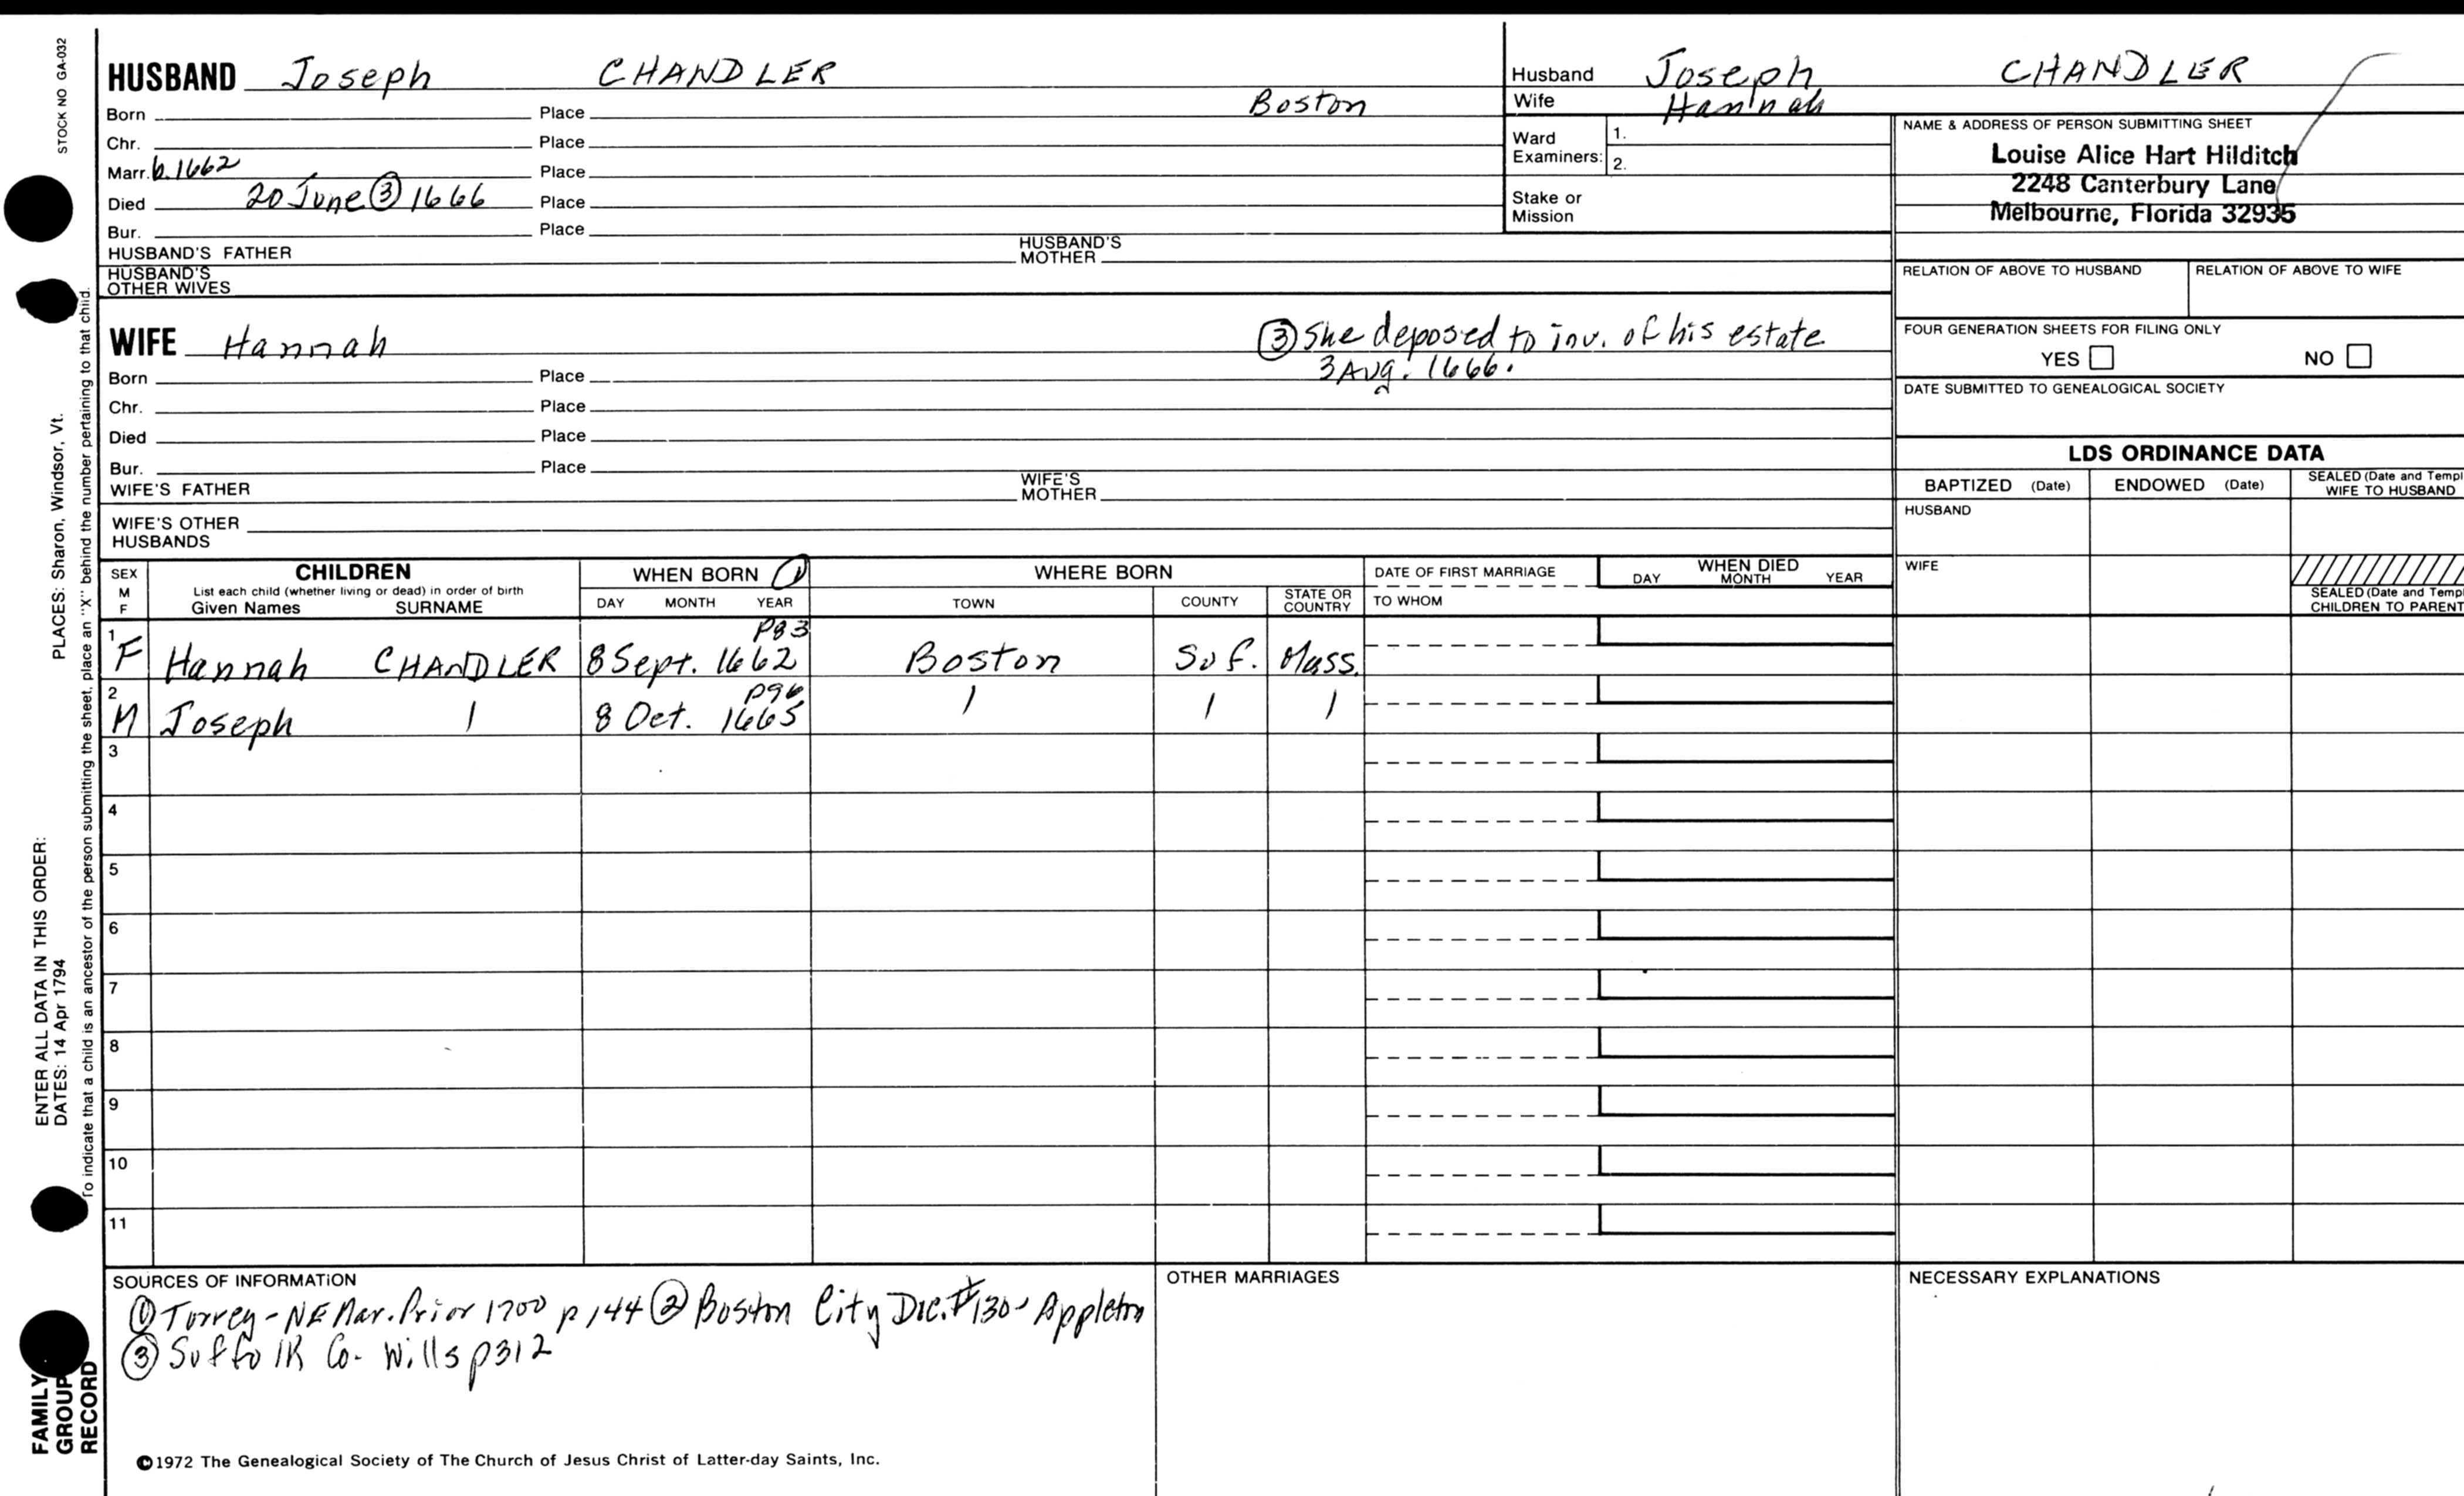 STOCK NO GA-032
HUSBAND Joseph CHANDLER
Born Place Boston
Chr. Place
Marr. b. 1662 Place
Died 20 June ③ 1666 Place
Bur. Place
HUSBAND'S FATHER HUSBAND'S MOTHER
HUSBAND'S OTHER WIVES
Husband Joseph CHANDLER
Wife Hannah
Ward Examiners: 1.
2.
Stake or Mission
NAME & ADDRESS OF PERSON SUBMITTING SHEET
Louise Alice Hart Hilditch
2248 Canterbury Lane
Melbourne, Florida 32935
RELATION OF ABOVE TO HUSBAND RELATION OF ABOVE TO WIFE
FOUR GENERATION SHEETS FOR FILING ONLY
YES NO
DATE SUBMITTED TO GENEALOGICAL SOCIETY
WIFE Hannah
③ She deposed to inv. of his estate
3 Aug. 1666.
Born Place
Chr. Place
Died Place
Bur. Place
WIFE'S FATHER WIFE'S MOTHER
WIFE'S OTHER HUSBANDS
LDS ORDINANCE DATA
BAPTIZED (Date) ENDOWED (Date) SEALED (Date and Templ
WIFE TO HUSBAND
HUSBAND
WIFE
SEALED (Date and Templ
CHILDREN TO PARENT
SEX M F
CHILDREN
List each child (whether living or dead) in order of birth
Given Names SURNAME
WHEN BORN ①
DAY MONTH YEAR
WHERE BORN
TOWN COUNTY STATE OR COUNTRY
DATE OF FIRST MARRIAGE
TO WHOM
WHEN DIED
DAY MONTH YEAR
p83
1 F Hannah CHANDLER 8 Sept. 1662 Boston Suf. Mass.
p96
2 M Joseph 1 8 Oct. 1665 1 1 1
3
4
5
6
7
8
9
10
11
SOURCES OF INFORMATION
① Torrey - NE Mar. Prior 1700 p 144 ② Boston City Doc. #130 - Appleton
③ Suffolk Co. Wills p312
OTHER MARRIAGES
NECESSARY EXPLANATIONS
©1972 The Genealogical Society of The Church of Jesus Christ of Latter-day Saints, Inc.
ENTER ALL DATA IN THIS ORDER:
DATES: 14 Apr 1794 PLACES: Sharon, Windsor, Vt.
To indicate that a child is an ancestor of the person submitting the sheet, place an "X" behind the number pertaining to that child.
FAMILY
GROUP
RECORD